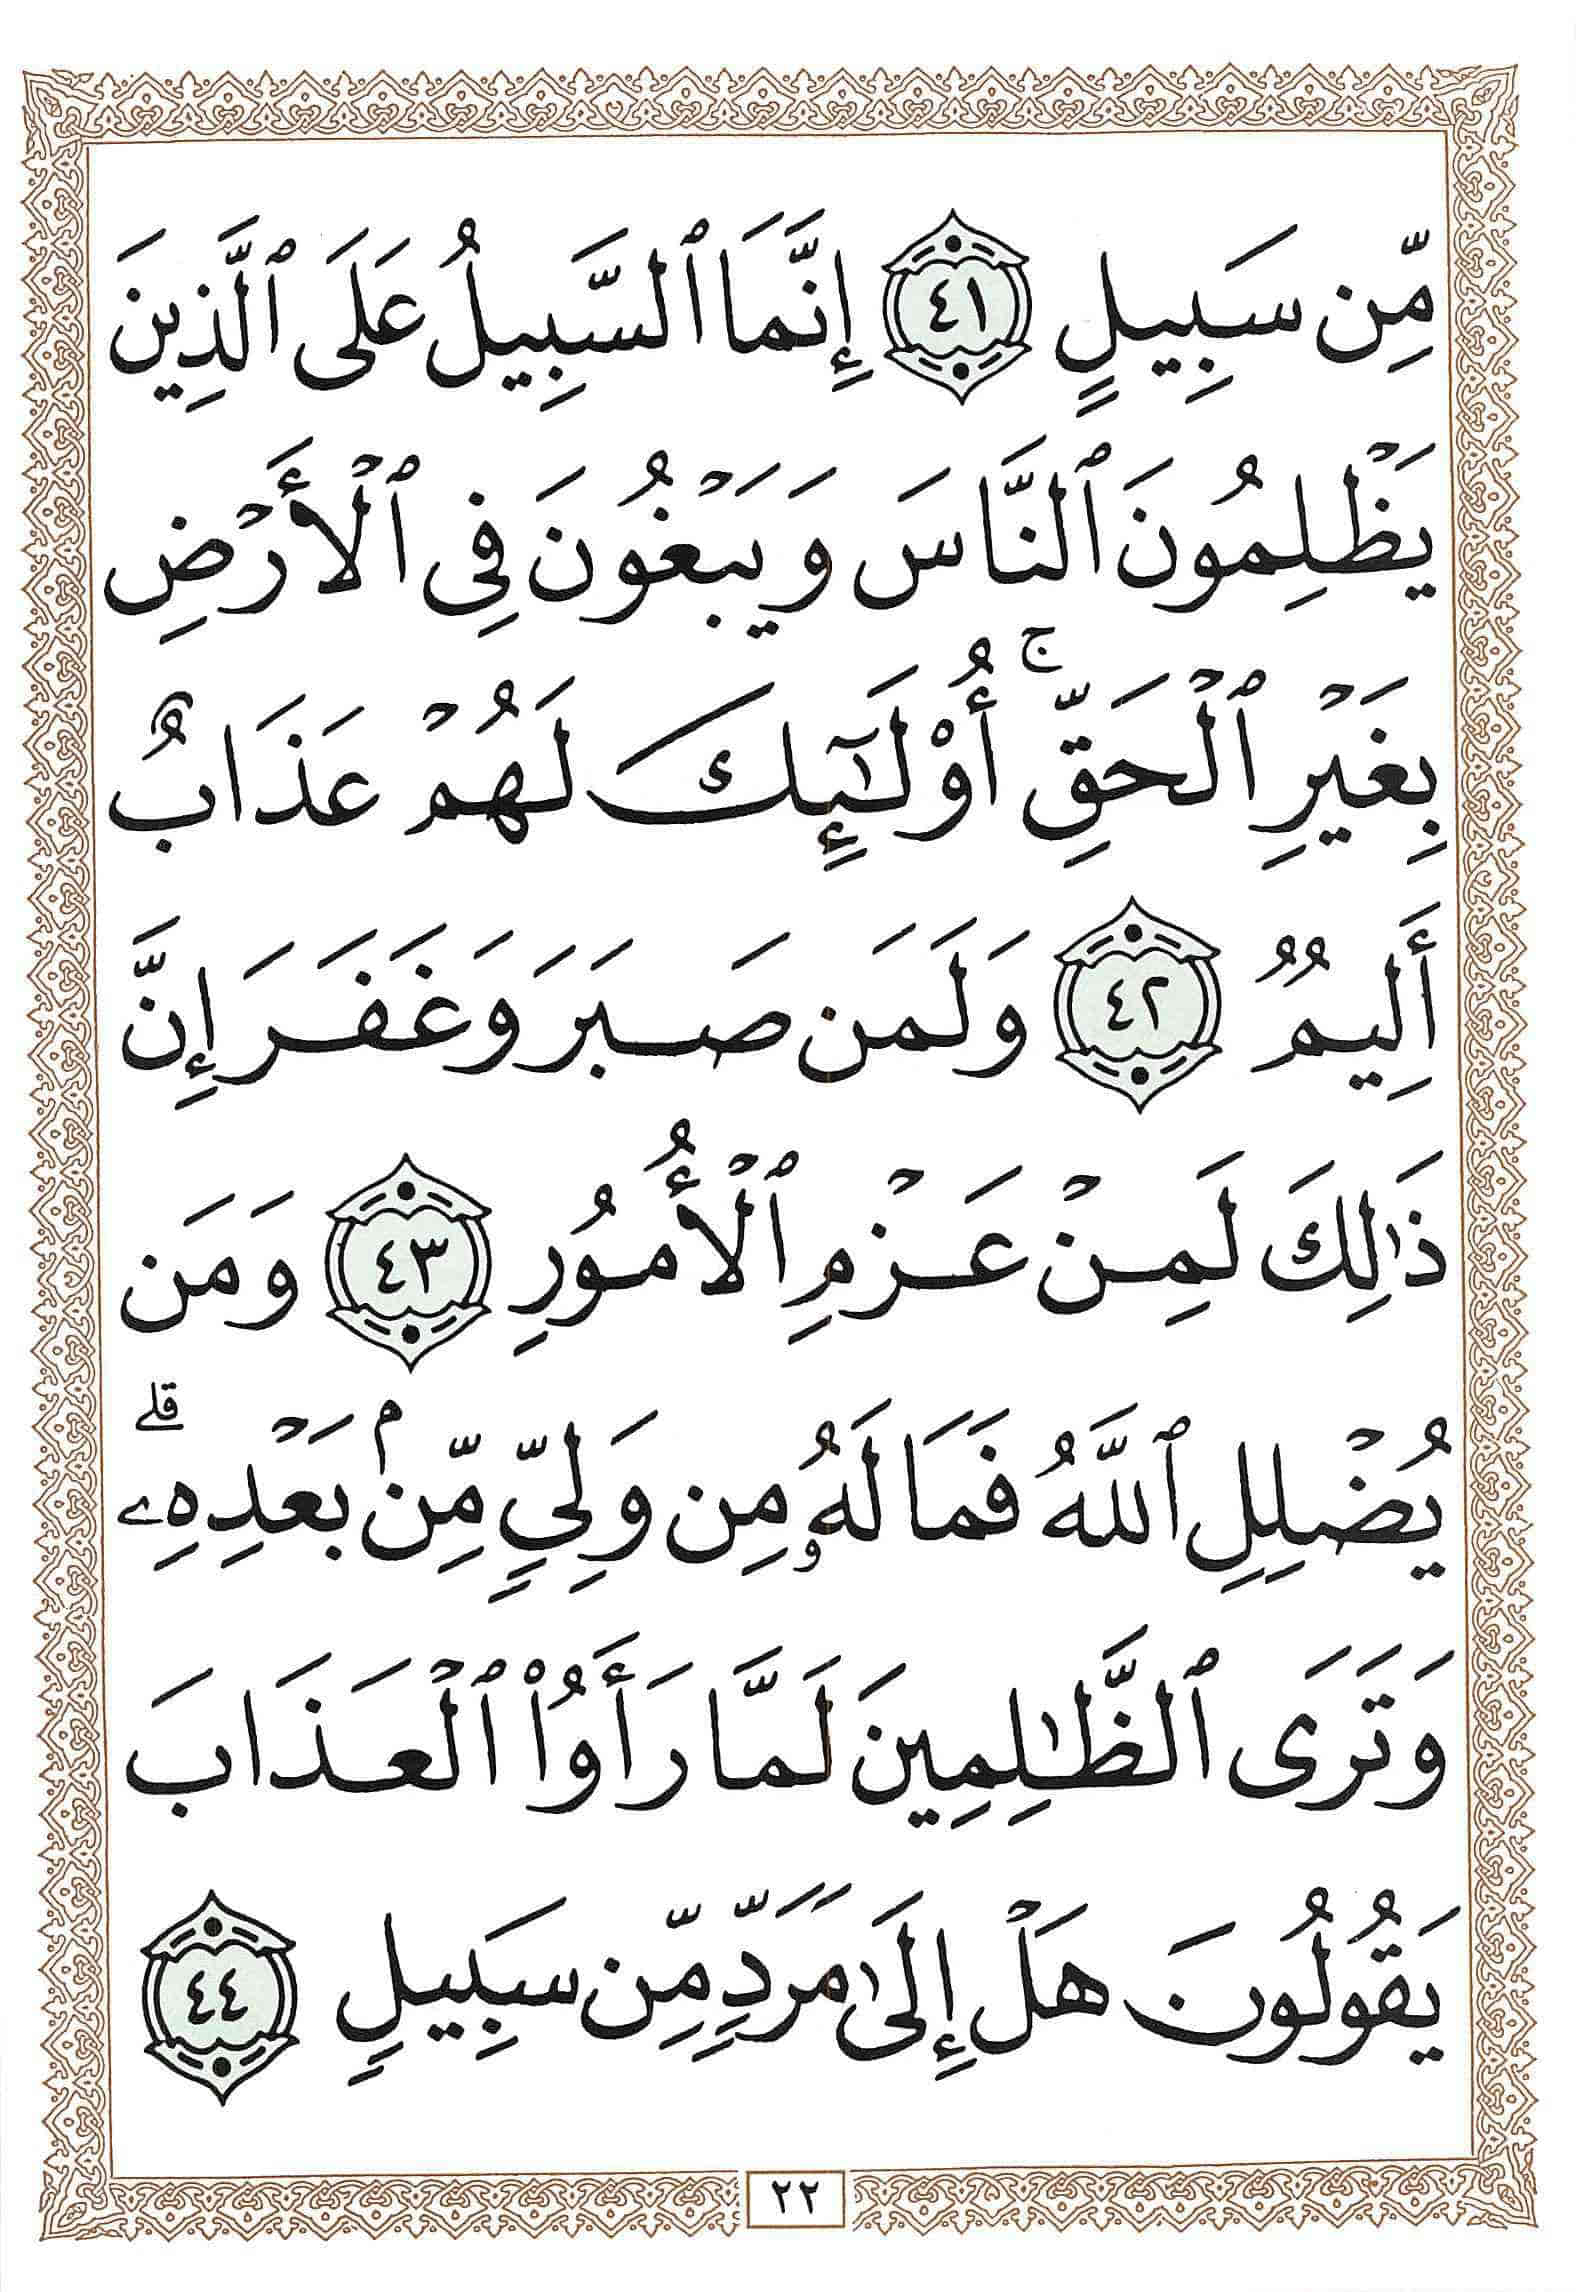 مِّن سَبِيلٍ ٤١ إِنَّمَا ٱلسَّبِيلُ عَلَى ٱلَّذِينَ
يَظْلِمُونَ ٱلنَّاسَ وَيَبْغُونَ فِى ٱلْأَرْضِ
بِغَيْرِ ٱلْحَقِّ ۚ أُو۟لَـٰٓئِكَ لَهُمْ عَذَابٌ
أَلِيمٌ ٤٢ وَلَمَن صَبَرَ وَغَفَرَ إِنَّ
ذَٰلِكَ لَمِنْ عَزْمِ ٱلْأُمُورِ ٤٣ وَمَن
يُضْلِلِ ٱللَّهُ فَمَا لَهُۥ مِن وَلِىٍّ مِّنۢ بَعْدِهِۦ ۗ
وَتَرَى ٱلظَّـٰلِمِينَ لَمَّا رَأَوُا۟ ٱلْعَذَابَ
يَقُولُونَ هَلْ إِلَىٰ مَرَدٍّ مِّن سَبِيلٍ ٤٤
٢٢